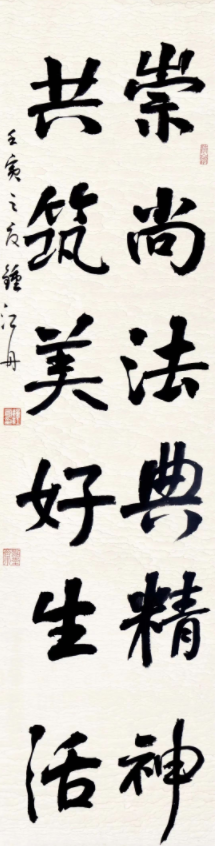 崇尚法典精神
共筑美好生活
壬寅之夜鍾江丹